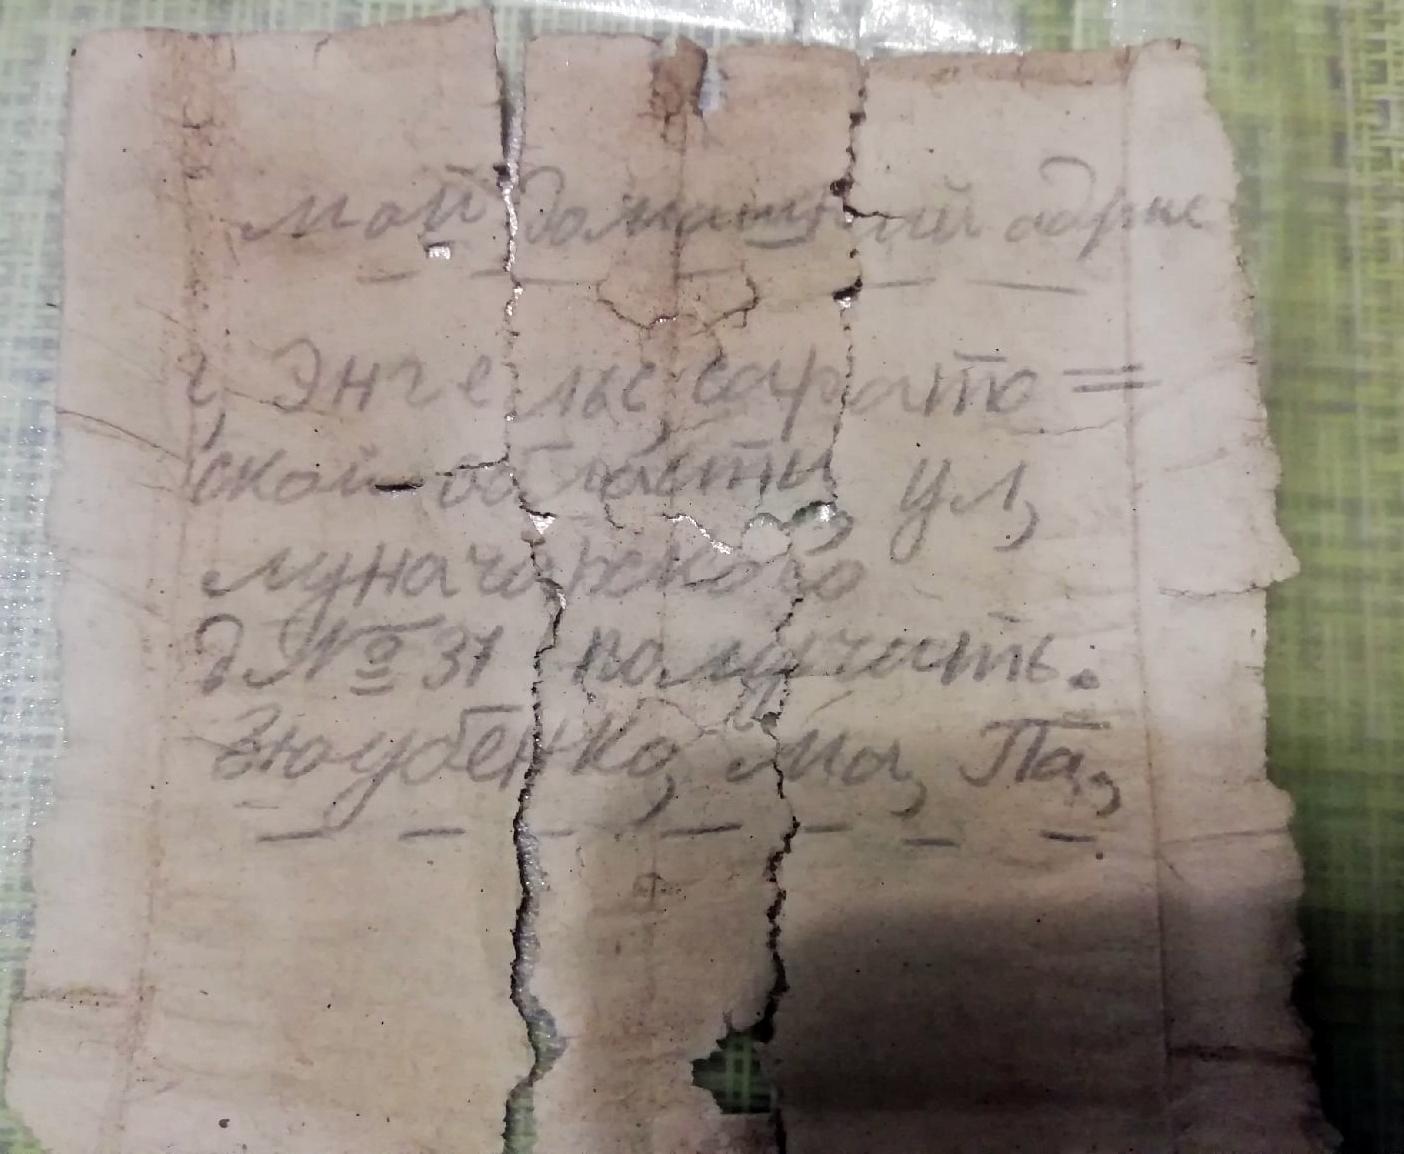 мой домашний адрес
г, Энгельс, сарато=
ской области, ул,
луначарского
д № 31 получить.
Зюубенко, Ма, Па,